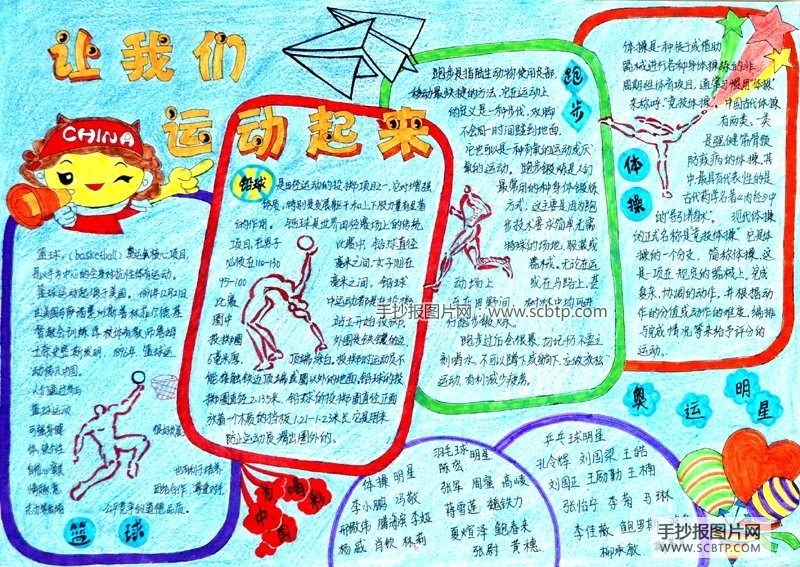 让我们
运动起来
CHINA
铅球
是田径运动的投掷项目之一,它对增强
体质,特别是发展躯干和上下肢力量有显著
的作用。铅球是世界田径赛场上的传统
项目,在男子
比赛中 铅球直径
为设在110-130
毫米之间,女子则在
95-100
毫米之间,铅球
比赛
图中
投掷圈
外圈是铁镶的边
6毫米厚,
顶端涂白。投掷时运动员不
能接触铁边顶端或圈以外的地面,铅球的投
掷圈直径2.135米。铅球的投掷圈直径正面
放着一个木质的挡板1.21-1.22米长,它是用来
防止运动员滑出圈外的。
篮球,(basketball)奥运会核心项目,
是以手为中心的全身对抗性体育运动。
篮球运动起源于美国。1891年12月21日
由美国马萨诸塞州斯普林菲尔德基
督教会训练学校体育教师詹姆
士奈史密斯发明,1896年篮球运
动传入中国。
篮球运动
公平竞争的道德品质。
篮球
跑步
跑步是指陆生动物使用足部,
移动最快捷的方法,它在运动上
的定义是一种步伐,双脚
不会同一时间碰到地面,
它也可以是一种有氧的运动或厌
氧的运动。跑步锻炼是人们
最常用的一种身体锻炼
方式,这主要是因为跑
步技术要求简单,无需
特殊的场地,服装或
器械。无论在运
动场上
或在马路上,甚
至在田野间,树林中均可进
行跑步锻炼。
跑步过后会很累,切记仍不要立
刻喝水,不可以蹲下或躺下,应该放松
运动,有利减少疲劳。
体操
体操是一种徒手或借助
器械进行各种身体操练的非
周期性体育项目,通常习惯用“体操”
来称呼“竞技体操”。中国古代体操
有两类,一类
是强健筋骨预
防疾病的体操,其
中最具有代表性的是
古代药库名著《内经》中
的“导引养生”。现代体操
的正式名称是“竞技体操”它是体
操的一个分支,简称体操,这
是一项在规定的器械上,完成
复杂、协调的动作,并根据动
作的分值或动作的难度、编排
与完成情况等来给予评分的
运动。
手抄报图片网
www.scbtp.com
奥运明星
为中国喝彩
体操明星
李小鹏 冯敬
邢傲伟 滕海滨 李娅
杨威 肖钦 林莉
羽毛球明星
陈宏
张军 周蜜 高崚
蒋雪莲 魏铁力
夏煊泽 鲍春来
张尉 黄穗
乒乓球明星
孔令辉 刘国梁 王皓
刘国正 王励勤 王楠
张怡宁 李菊 马琳
李佳薇
柳承敏
手抄报图片网
WWW.SCBTP.COM